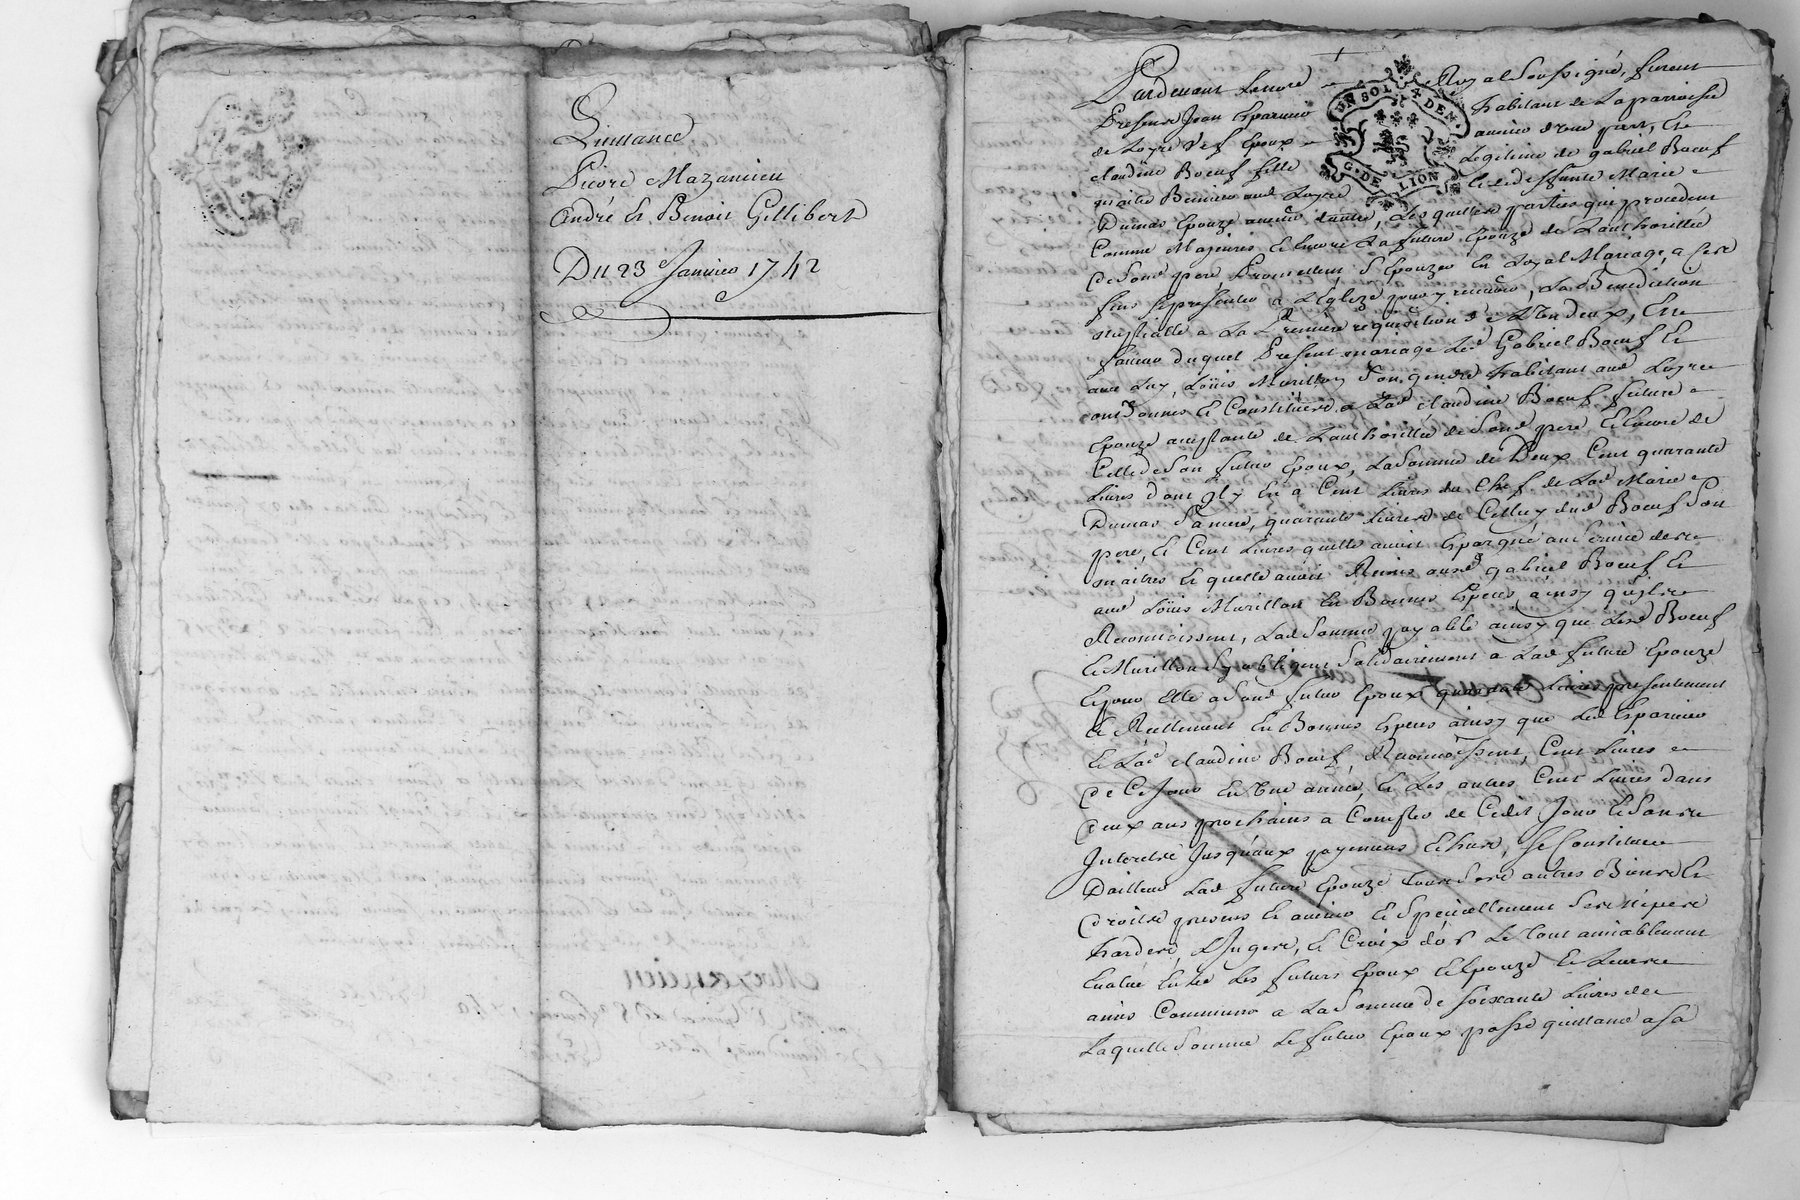 Quittance
Pierre Mazancieu
André et Benoit Gillibert
Du 23e Janvier 1742
Pardevant Lenore Royal Soussigné, furent
UN SOL 4 DEN.
G. DE LION
Present Jean Esparcieu habitant de La parroisse
de Loyre d'une part, Et
claudine Boeuf fille Legitime de gabriel Boeuf
et de deffunte Marie
Dumas Epouze avenir d'autre, Lesquelles parties qui procedent
Comme Majeures Et encore La future Epouze de Lauthorité
de Sond pere Promettent S'Epouzer En Loyal Mariage, a
se presenter a L'Eglize pour y recevoir, La Benediction
nuptialle a La Premiere requisition de L'Un deux, En
faveur duquel Present mariage Led Gabriel Boeuf Et
avec Luy Loüis Murillon Son gendre habitant aud Loyre
ont Donnés Et Constitüés a Lad claudine Boeuf future
Epouze acceptante de Lauthorité de Sond pere Et Encore de
Celle de Son futur Epoux, La Somme de Deux Cent quarante
Livres dont Il y En a Cent Livres du Chef de Lad Marie
Dumas Sa mere, quarante Livres de Celluy dud Boeuf Son
pere, Et Cent Livres quelle avoit Epargné au Service de ses
maitres Et quelle avoit Remis aud gabriel Boeuf Et
aud Loüis Murillon En Bonnes Especes ainsy quils
Reconnoissent, Lad Somme payable ainsy que Lesd Boeuf
Et Murillon Sy obligent Solidairement a Lad future Epouze
Et pour Elle a Sond futur Epoux quarante Livres presentement
Et Reellement En Bonnes Especes ainsy que Led Esparcieu
Et Lad claudine Boeuf, Reconnoissent, Cent Livres
de Ce Jour En Une année, Et Les autres Cent Livres dans
deux ans prochains a Compter de Cedit Jour Et Sans
Interets Jusquaux payemens Echus, Se Constitue
Dailleurs Lad future Epouze tous Ses autres Biens Et
droits presens Et avenir Et Specialement Ses nipes
hardes, Linges, Et Croix d'or Le tout amiablement
Evalué Entre Les futurs Epoux Et Epouze Et Leurs
amis Communs a La Somme de Soixante Livres de
Laquelle Somme Le futur Epoux passe quittance a Sa